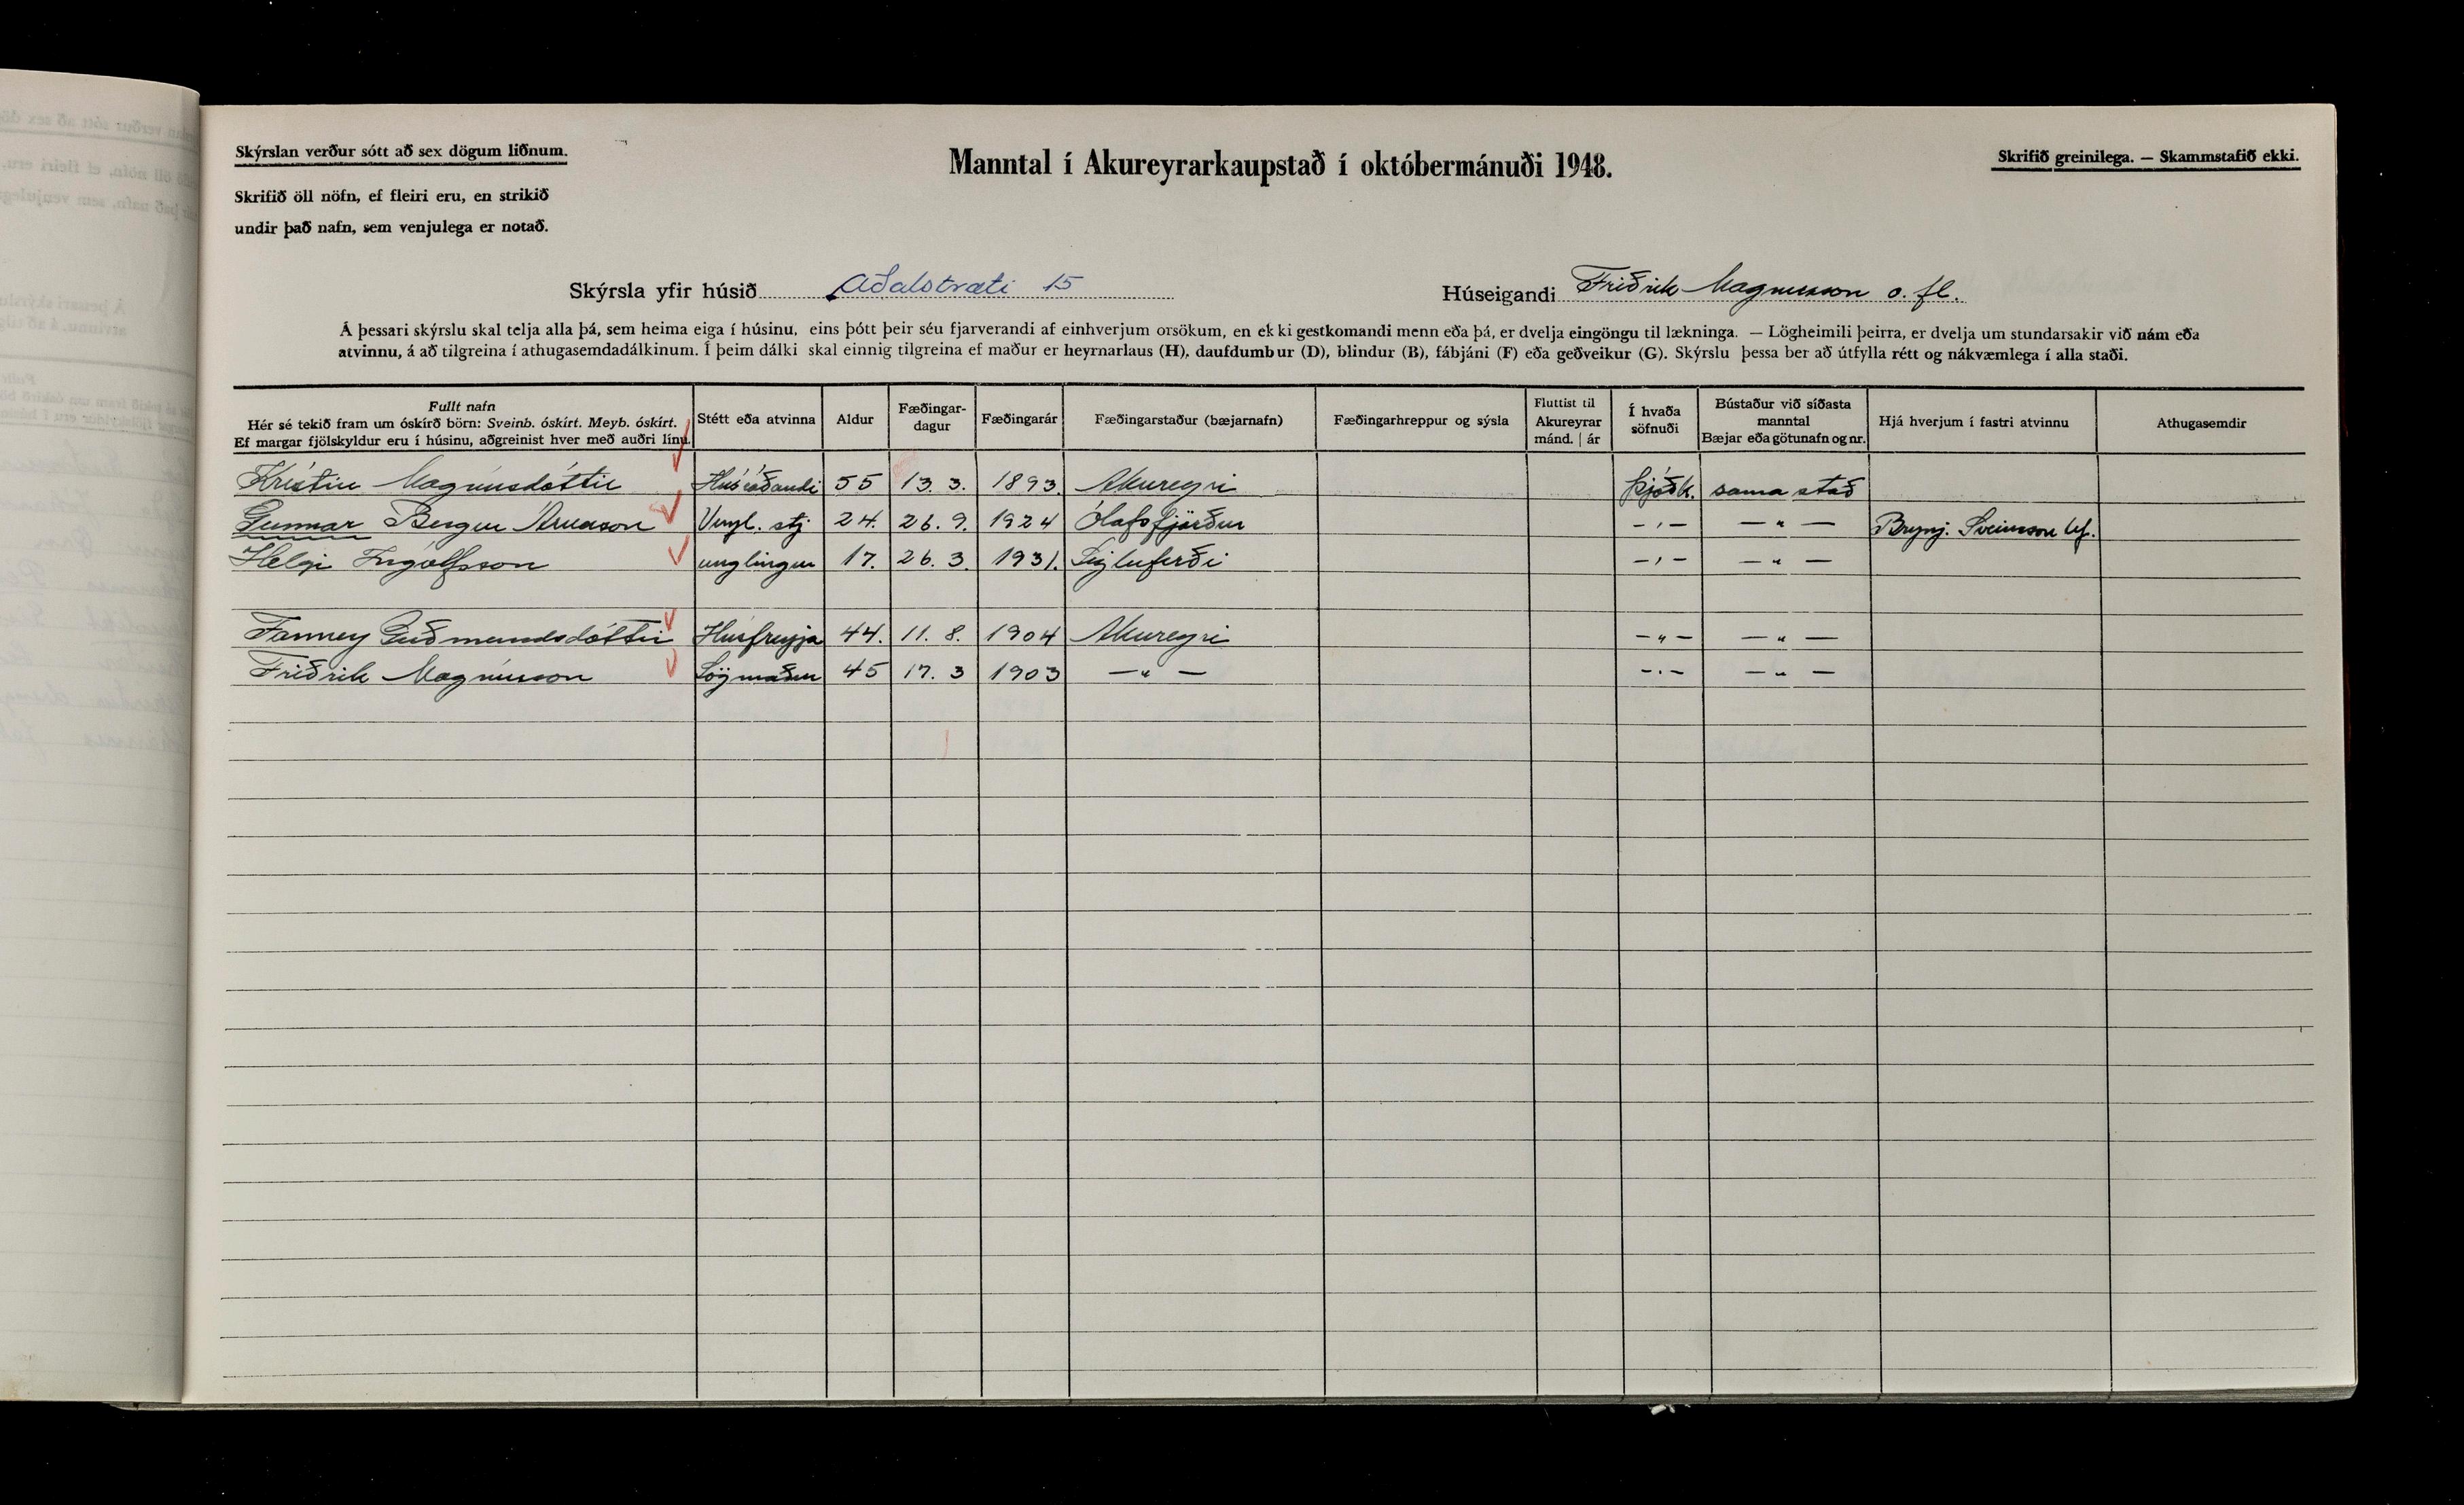 Skýrslan verður sótt að sex dögum liðnum.
Skrifið öll nöfn, ef fleiri eru, en strikið
undir það nafn, sem venjulega er notað.
Manntal í Akureyrarkaupstað í októbermánuði 1948.
Skrifið greinilega. — Skammstafið ekki.
Skýrsla yfir húsið Aðalstræti 15
Húseigandi Friðrik Magnússon o. fl.
Á þessari skýrslu skal telja alla þá, sem heima eiga í húsinu, eins þótt þeir séu fjarverandi af einhverjum orsökum, en ekki gestkomandi menn eða þá, er dvelja eingöngu til lækninga. — Lögheimili þeirra, er dvelja um stundarsakir við nám eða
atvinnu, á að tilgreina í athugasemdadálkinum. Í þeim dálki skal einnig tilgreina ef maður er heyrnarlaus (H), daufdumbur (D), blindur (B), fábjáni (F) eða geðveikur (G). Skýrslu þessa ber að útfylla rétt og nákvæmlega í alla staði.
Fullt nafn
Hér sé tekið fram um óskírð börn: Sveinb. óskírt. Meyb. óskírt.
Ef margar fjölskyldur eru í húsinu, aðgreinist hver með auðri línu.
Stétt eða atvinna
Aldur
Fæðingar-
dagur
Fæðingarár
Fæðingarstaður (bæjarnafn)
Fæðingarhreppur og sýsla
Fluttist til
Akureyrar
mánd. | ár
Í hvaða
söfnuði
Bústaður við síðasta
manntal
Bæjar eða götunafn og nr.
Hjá hverjum í fastri atvinnu
Athugasemdir
Kristín Magnúsdóttir Húsráðandi 55 13. 3. 1893. Akureyri Þjóðk. sama stað
Gunnar Bergur Árnason Verzl. stj 24. 26. 9. 1924 Ólafsfjörður — " — — " — Brynj. Sveinsson h/f.
Helgi Ingólfsson unglingur 17. 26. 3. 1931. Siglufirði — " — — " —
Fanney Guðmundsdóttir Húsfreyja 44. 11. 8. 1904 Akureyri — " — — " —
Friðrik Magnússon Lögmaður 45 17. 3 1903 — " — — " — — " —